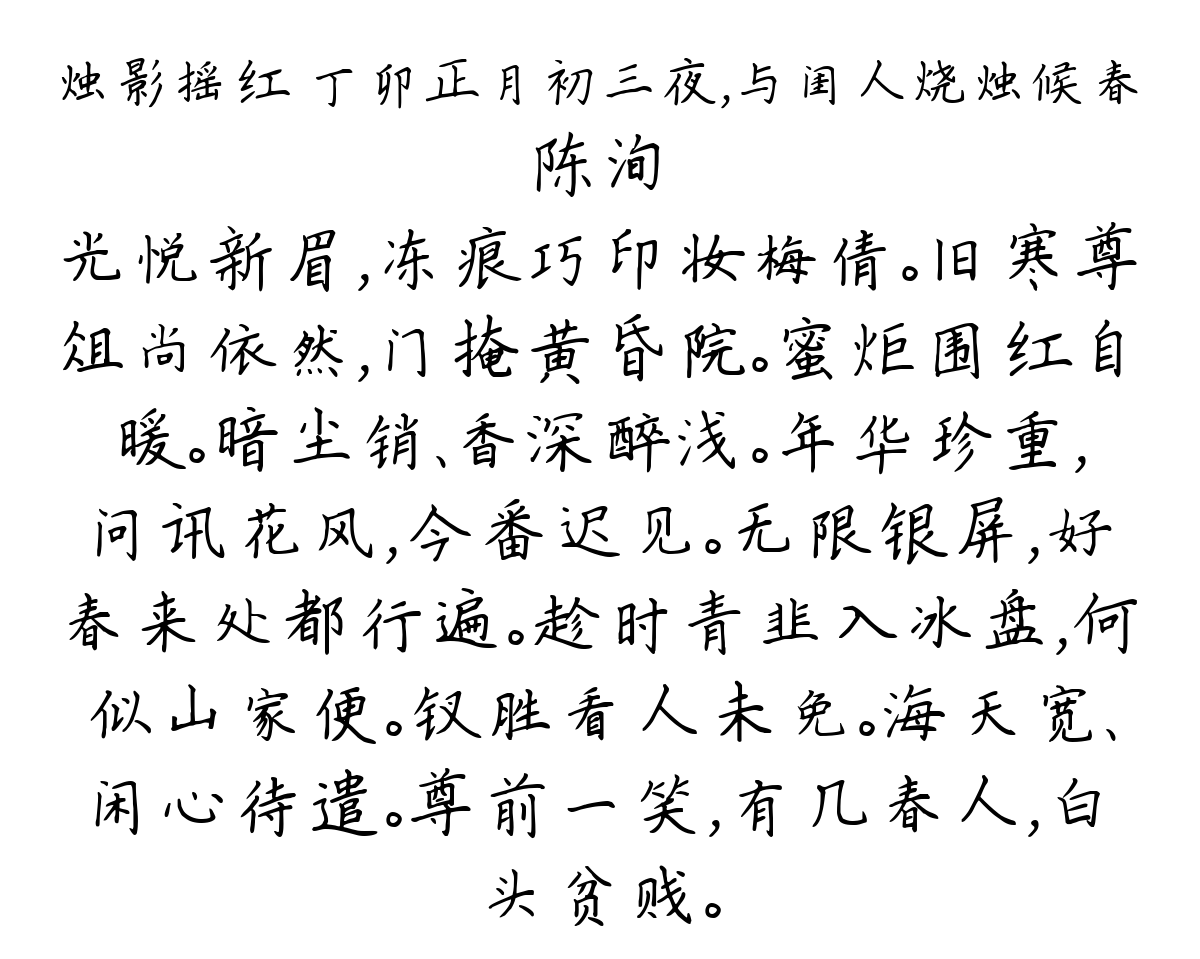 烛影摇红 丁卯正月初三夜,与闺人烧烛候春
陈洵
光悦新眉,冻痕巧印妆梅倩。旧寒尊
俎尚依然,门掩黄昏院。蜜炬围红自
暖。暗尘销、香深醉浅。年华珍重,
问讯花风,今番迟见。无限银屏,好
春来处都行遍。趁时青韭入冰盘,何
似山家便。钗胜看人未免。海天宽、
闲心待遣。尊前一笑,有几春人,白
头贫贱。